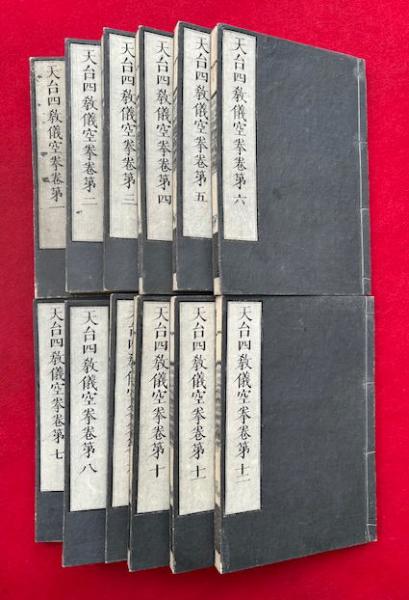 天台四教儀空拳卷第一
天台四教儀空拳卷第二
天台四教儀空拳卷第三
天台四教儀空拳卷第四
天台四教儀空拳卷第五
天台四教儀空拳卷第六
天台四教儀空拳卷第七
天台四教儀空拳卷第八
天台四
天台四教儀空拳卷第十
天台四教儀空拳卷第十一
天台四教儀空拳卷第十二